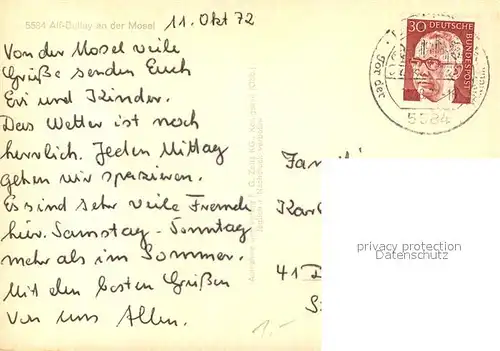 5584 Alf-Bullay an der Mosel
11. Okt 72
Von der Mosel viele
Grüße senden Euch
Evi und Kinder.
Das Wetter ist noch
herrlich. Jeden Mittag
gehen wir spazieren.
Es sind sehr viele Fremde
hier. Samstag - Sonntag
mehr als im Sommer.
Mit den besten Grüßen
Von uns Allen.
30
DEUTSCHE
BUNDESPOST
5584
Tor der
Fam
Karl
41 D
S
privacy protection
Datenschutz
1.-